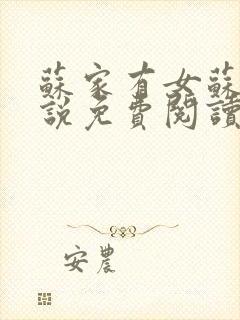 蘇家有女蘇
說免費閱讀
安農